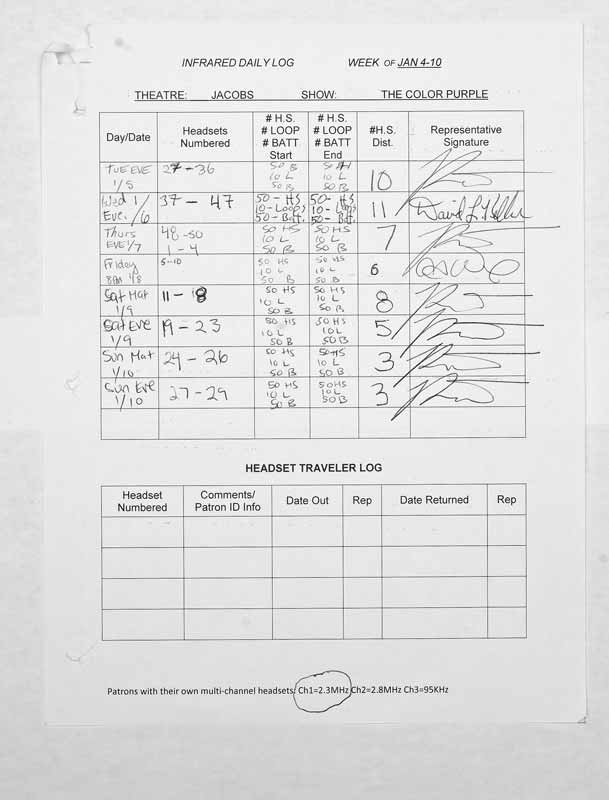 INFRARED DAILY LOG WEEK OF JAN 4-10
THEATRE: JACOBS SHOW: THE COLOR PURPLE
Day/Date Headsets Numbered # H.S. # LOOP # BATT Start # H.S. # LOOP # BATT End #H.S. Dist. Representative Signature
TUE EVE 1/5 27-36 50 B 10 L 50 B 10 L 50 B 10
Wed 1/ Eve. /6 37 - 47 50 - HS 10 - Loops 50 - Batt. 50 - HS 10 - Loops 50 - Batt. 11
Thurs EVE 1/7 48-50 1 - 4 50 HS 10 L 50 B 50 HS 10 L 50 B 7
Friday 8PM 1/8 5-10 50 HS 10 L 50 B 50 HS 10 L 50 B 6
Sat Mat 1/9 11 - 18 50 HS 10 L 50 B 50 HS 10 L 50 B 8
Sat Eve 1/9 19 - 23 50 HS 10 L 50 B 50 HS 10 L 50 B 5
Sun Mat 1/10 24 - 26 50 HS 10 L 50 B 50 HS 10 L 50 B 3
Sun Eve 1/10 27-29 50 HS 10 L 50 B 50 HS 10 L 50 B 3
HEADSET TRAVELER LOG
Headset Numbered Comments/ Patron ID Info Date Out Rep Date Returned Rep
Patrons with their own multi-channel headsets: Ch1=2.3MHz Ch2=2.8MHz Ch3=95KHz